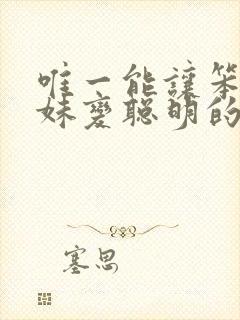 唯一能讓笨
妹變聰明的
塞思